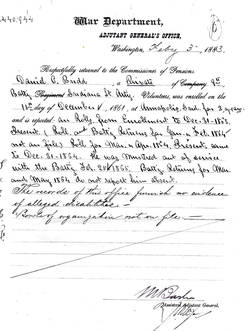 War Department,
ADJUTANT GENERAL'S OFFICE,
Washington, Feby 3d 1883.
Respectfully returned to the Commissioner of Pensions.
David C. Budd, a Private of Company 9th
Batty Regiment Indiana Lt. Arty Volunteers, was enrolled on the
11th day of December, 1861, at Indianapolis, Ind. for 3 years
and is reported on Rolls from Enrollment to Dec. 31-1863,
Present. Roll and Batty Returns for Jan. & Feb. 1864
not on file. Roll for Mar. & Apr. 1864, Present, same
to Dec. 31-1864. He was mustered out of service
with the Batty. Returns for Mar.
and May 1864 do not report him absent.
The records of this office furnish no evidence
of alleged disabilities.
Books of organization not on file.
Assistant Adjutant General.